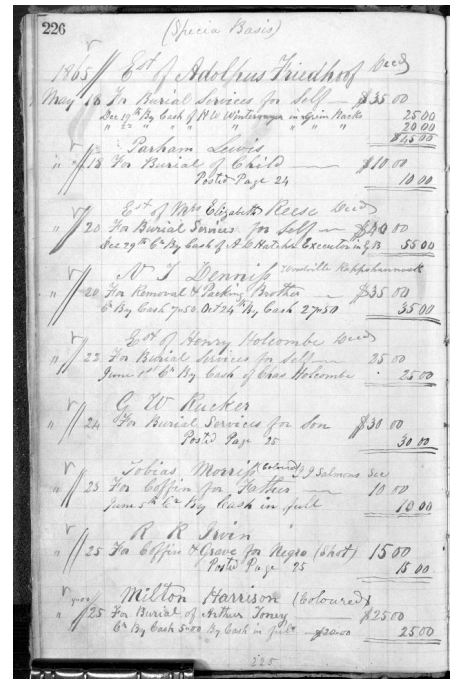 226
(Specia Basis)
1865 Est of Adolphus Friedhoof Decd
May 18 For Burial Services for Self — $35.00
Dec 19th By Cash of H W in Green Backs 25 00
" 22 " " " " " " " " 20 00
$45.00
Parham Lewis
" 18 For Burial of Child — $10 00
Posted Page 24 10 00
Est of Mrs Elizabeth Reese Decd
" 20 For Burial Services for Self — $40 00
Dec 29th Cr By Cash of A C Executor in G B 55 00
N J Denniss Woodville Rappahannock
" 20 For Removal & Packing Brother — $35 00
Cr By Cash 7.50 Oct 24th By Cash 27.50 35 00
Est of Henry Holcombe Decd
" 22 For Burial Services for Self — 25 00
June 1st Cr By Cash of Chas Holcombe 25 00
G W Rucker
" 24 For Burial Services for Son $30 00
Posted Page 25 30 00
Tobias Morriss (Coloured) J Salmons Sec
" 25 For Coffin for Father — 10 00
June 5th Cr By Cash in full 10 00
R R Irvin
" 25 For Coffin & Grave for Negro (Shot) 15 00
Posted Page 25 15 00
Milton Harrison (Coloured)
" 25 For Burial of Arthur Toney $25 00
Cr By Cash 5.00 By Cash in full — $20.00 25 00
225